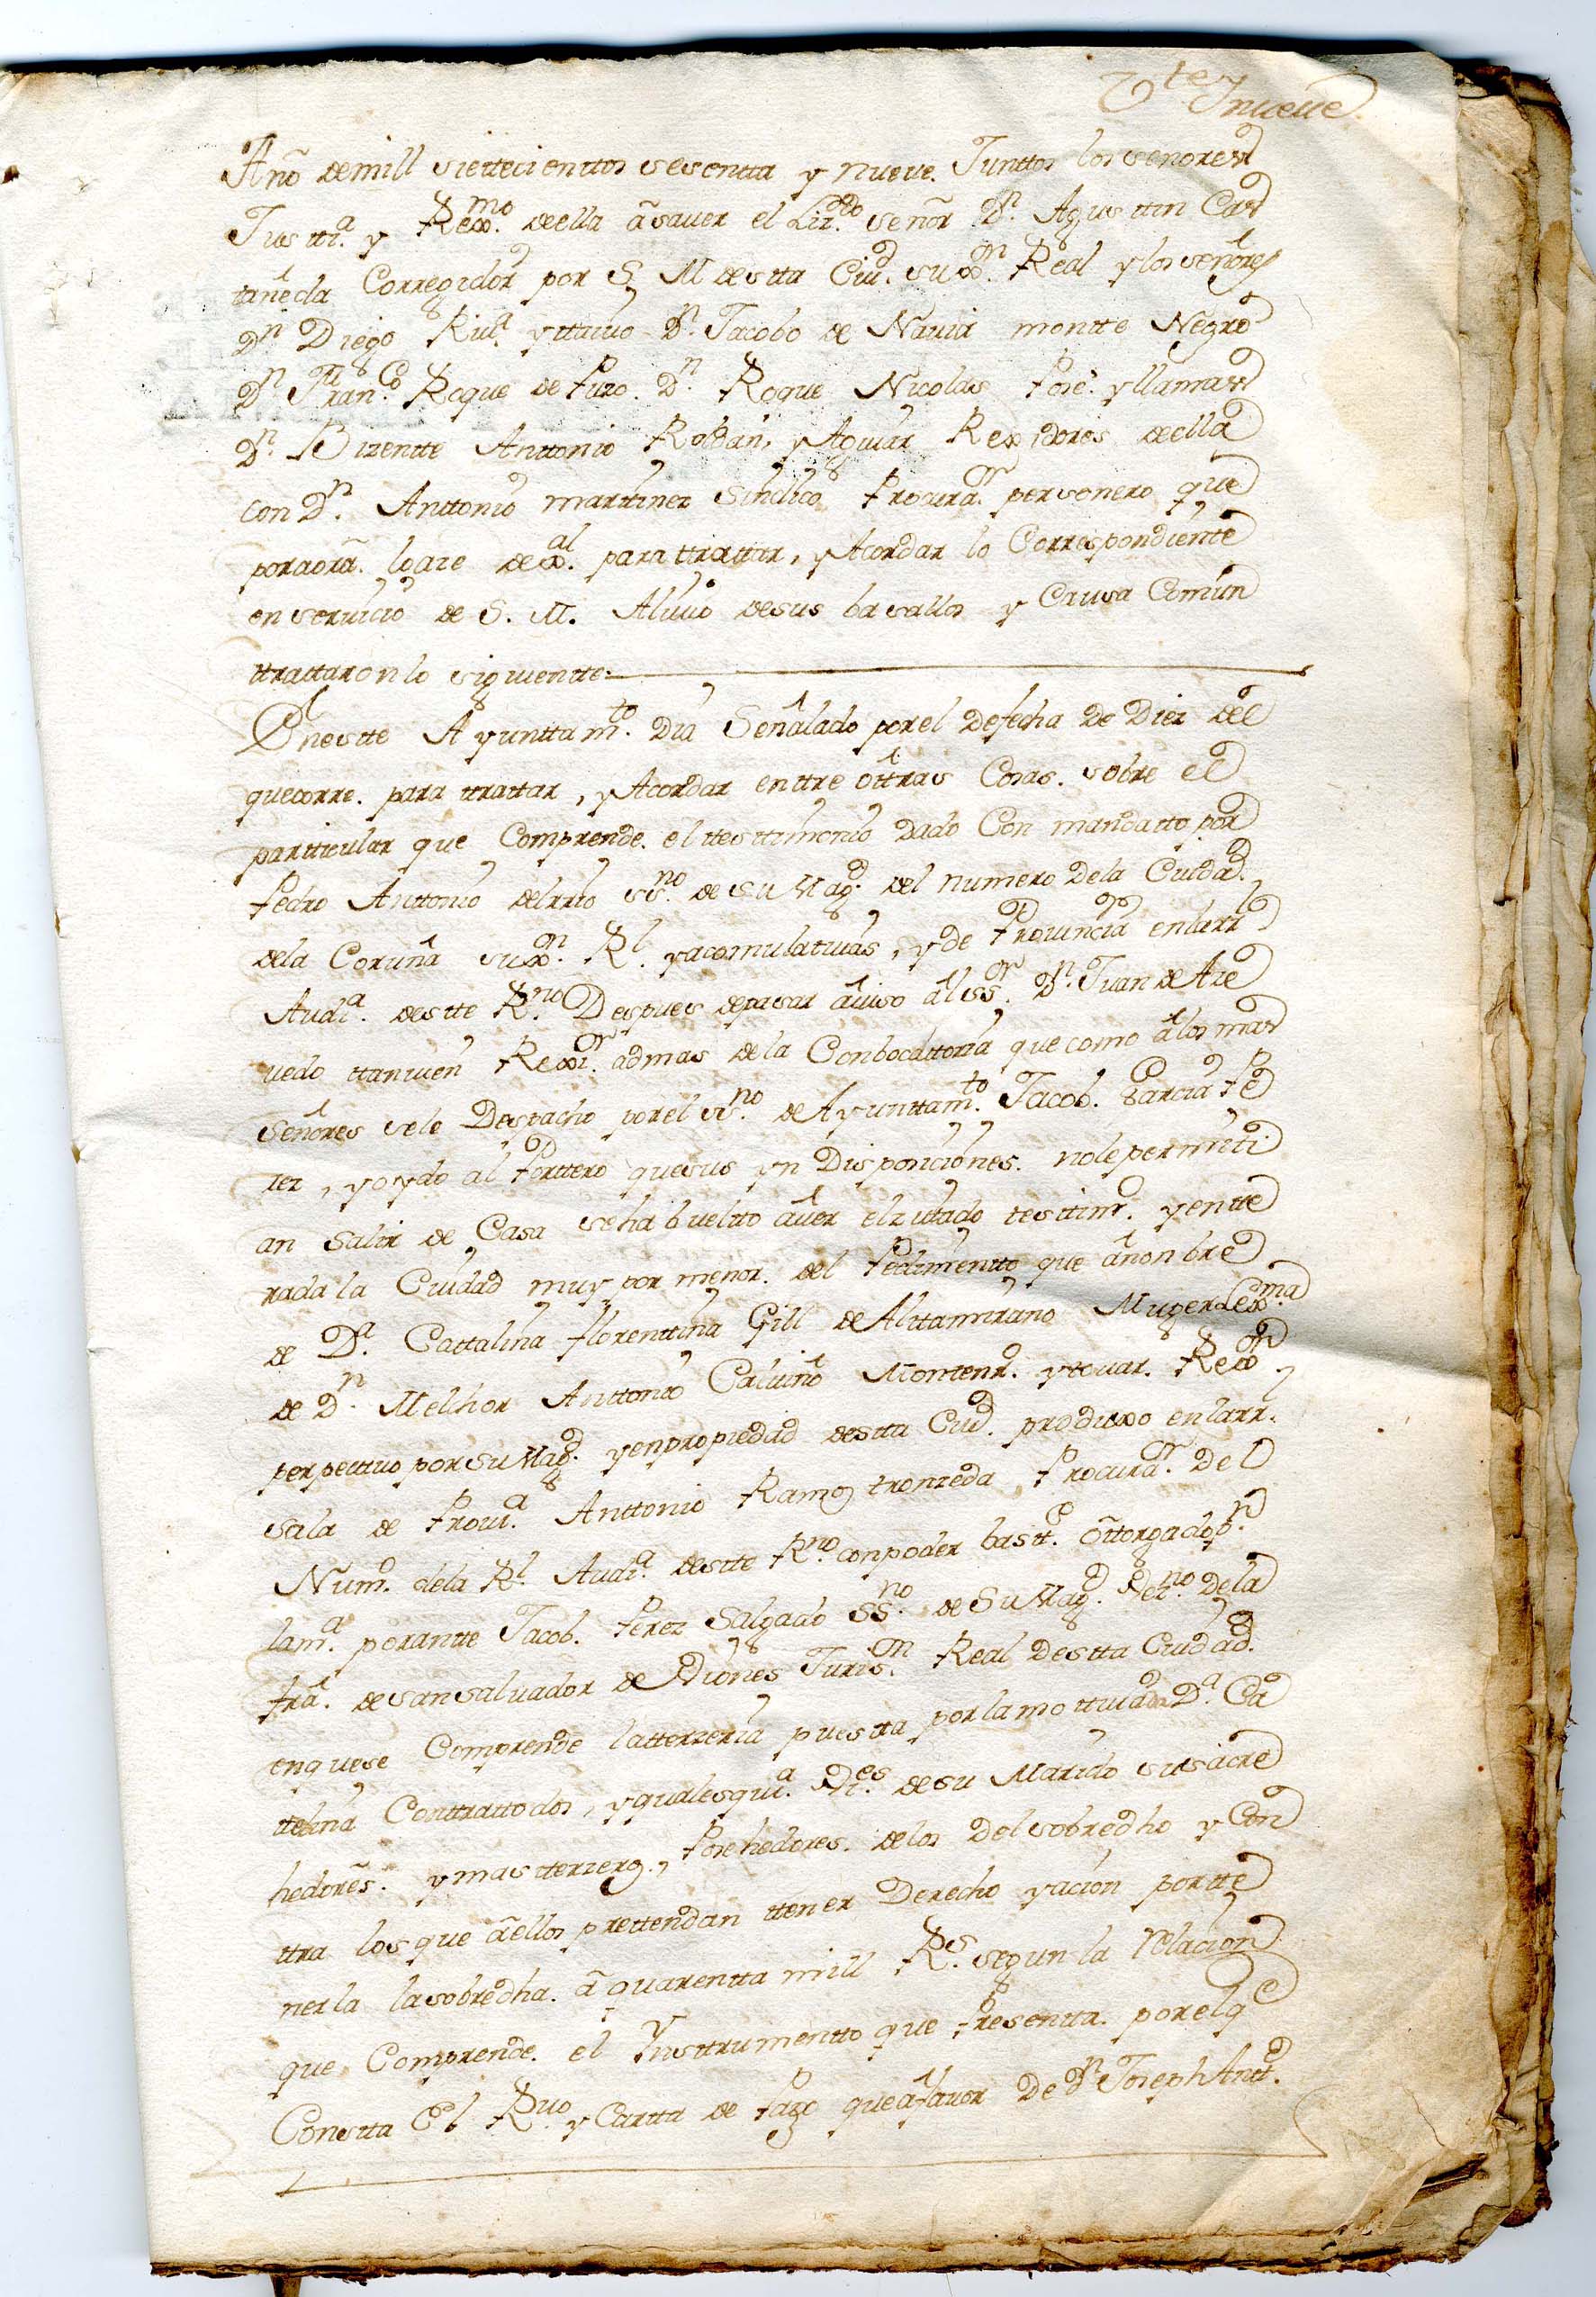 Vte y nueue
Año demill siettecienttos sesentta y nueve. Junttos los señores
Justti.ª y Rex.mo deella âsauer el Liz.do señor Dn. Agusttin Cas
tañeda Corregidor por S. M destta Ciud. suxon. Real ylos señores
Dn Diego Riuª. yttauuo Dn. Jacobo de Nauia montte Negro
Dn Fran.co Roque de Puzo. Dn. Roque Nicolas Pose. yllamas
Dn. Bizentte Anttonio Roldan, y Aguiar Rexidores deella
con Dn. Anttonio marttinez Sindico Procurar. personero que
poraora. loaze dexal. para ttrattar, y Acordar lo Correspondiente
en seruicio de S. M. Aliuio desus basallos y Causa Comun
ttrattaron lo siguientte.
Enestte Ayunttam.to Dia Señalado porel defecha de Diez del
quecorre. para ttrattar, y Acordar enttre ottras Cosas. sobre el
partticular que Comprende. el ttesttimonio dado Con mandatto por
Pedro Anttonio delrrio ss.no de su Magd. del numero dela Ciudad.
dela Coruña suxon. Rl. yacomulatiuas, y de Prouincia enlarrl
Audª. destte Rno. Despues depasar âuiso âl ssr. Dn. Juan de Aze
uedo ttanuien Rexir. admas dela Conbocattoria que como âlos mas
Señores sele Despacho porel ss.no de Ayunttam.to Jacob. Garcia Pe
rez, yoydo al Porttero quesus yn Disposiciones. nolepermiti
an salir de Casa seha buelto âuer elzitado testtimo. yentte
rada la Ciudad muy por menor. del Pedimentto que ânonbre
de Dª. Cattalina florenttina Gill de Alttamirano Muger Lexma
de Dn. Melchor Anttonio Caluiño Montenr. ytouar. Rexor
perpettuo por su Magd. yenpropiedad destta Ciud. produxo enlarrl.
sala de Prouª. Anttonio Ramos tronzeda Procurar. Del
Num.o dela Rl. Audª. destte Rno. conpoder bastte. ôttorgado pr.
lamª. porantte Jacob. Perez Salgado ss.no de Su Magd. Vezno. Dela
frâ. desansaluador de Viones Jurison. Real Destta Ciudad.
enquese Comprende latterzeria puestta por lamottiuada Dª. Ca
ttalina Conttrattodos, yqualesquiª. Vies. de su Marido susacre
hedores. ymastterzeros, Posehedores. delos Del sobredho y Con
ttra los que âellos prettendan ttener Derecho yacion por tte
nerla lasobredha. â quarentta mill Rs. segun la relacion
que Comprende. el Ynsttrumentto que Presentta. por elqe
Constta El Ruo. y Cartta de Pago que âfauor De Dn Joseph Antto.